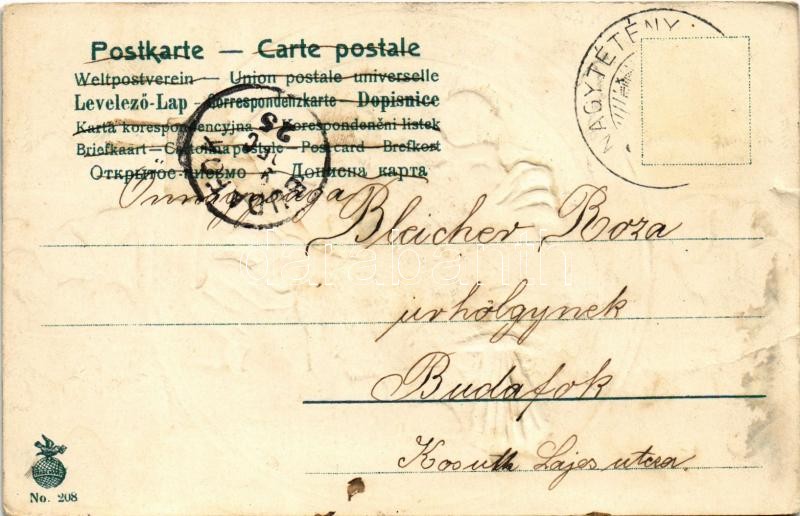 Postkarte — Carte postale
Weltpostverein — Union postale universelle
Levelező-Lap – Correspondenzkarte – Dopisnice
Karta korespondencyjna – Korespondenční listek
Briefkaart – Cartolina postale – Postcard – Brefkort
Открытое письмо – Дописна карта
NAGYTÉTÉNY
BUDAFOK
DEC
25
Bleicher Roza
urhölgynek
Budafok
Kosuth Lajos utcza.
darabanth
No. 208